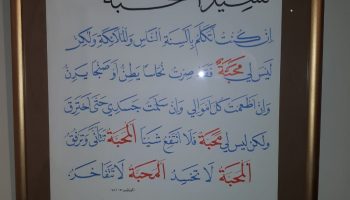 نشيد المحبة
إن كنت أتكلم بألسنة الناس والملائكة ولكن
ليس لي محبة فقد صرت نحاسا يطن أو صنجا يرن
وإن أطعمت كل أموالي وإن سلمت جسدي حتى أحترق
ولكن ليس لي محبة فلا أنتفع شيئا المحبة تتأنى وترفق
المحبة لا تحسد المحبة لا تتفاخر